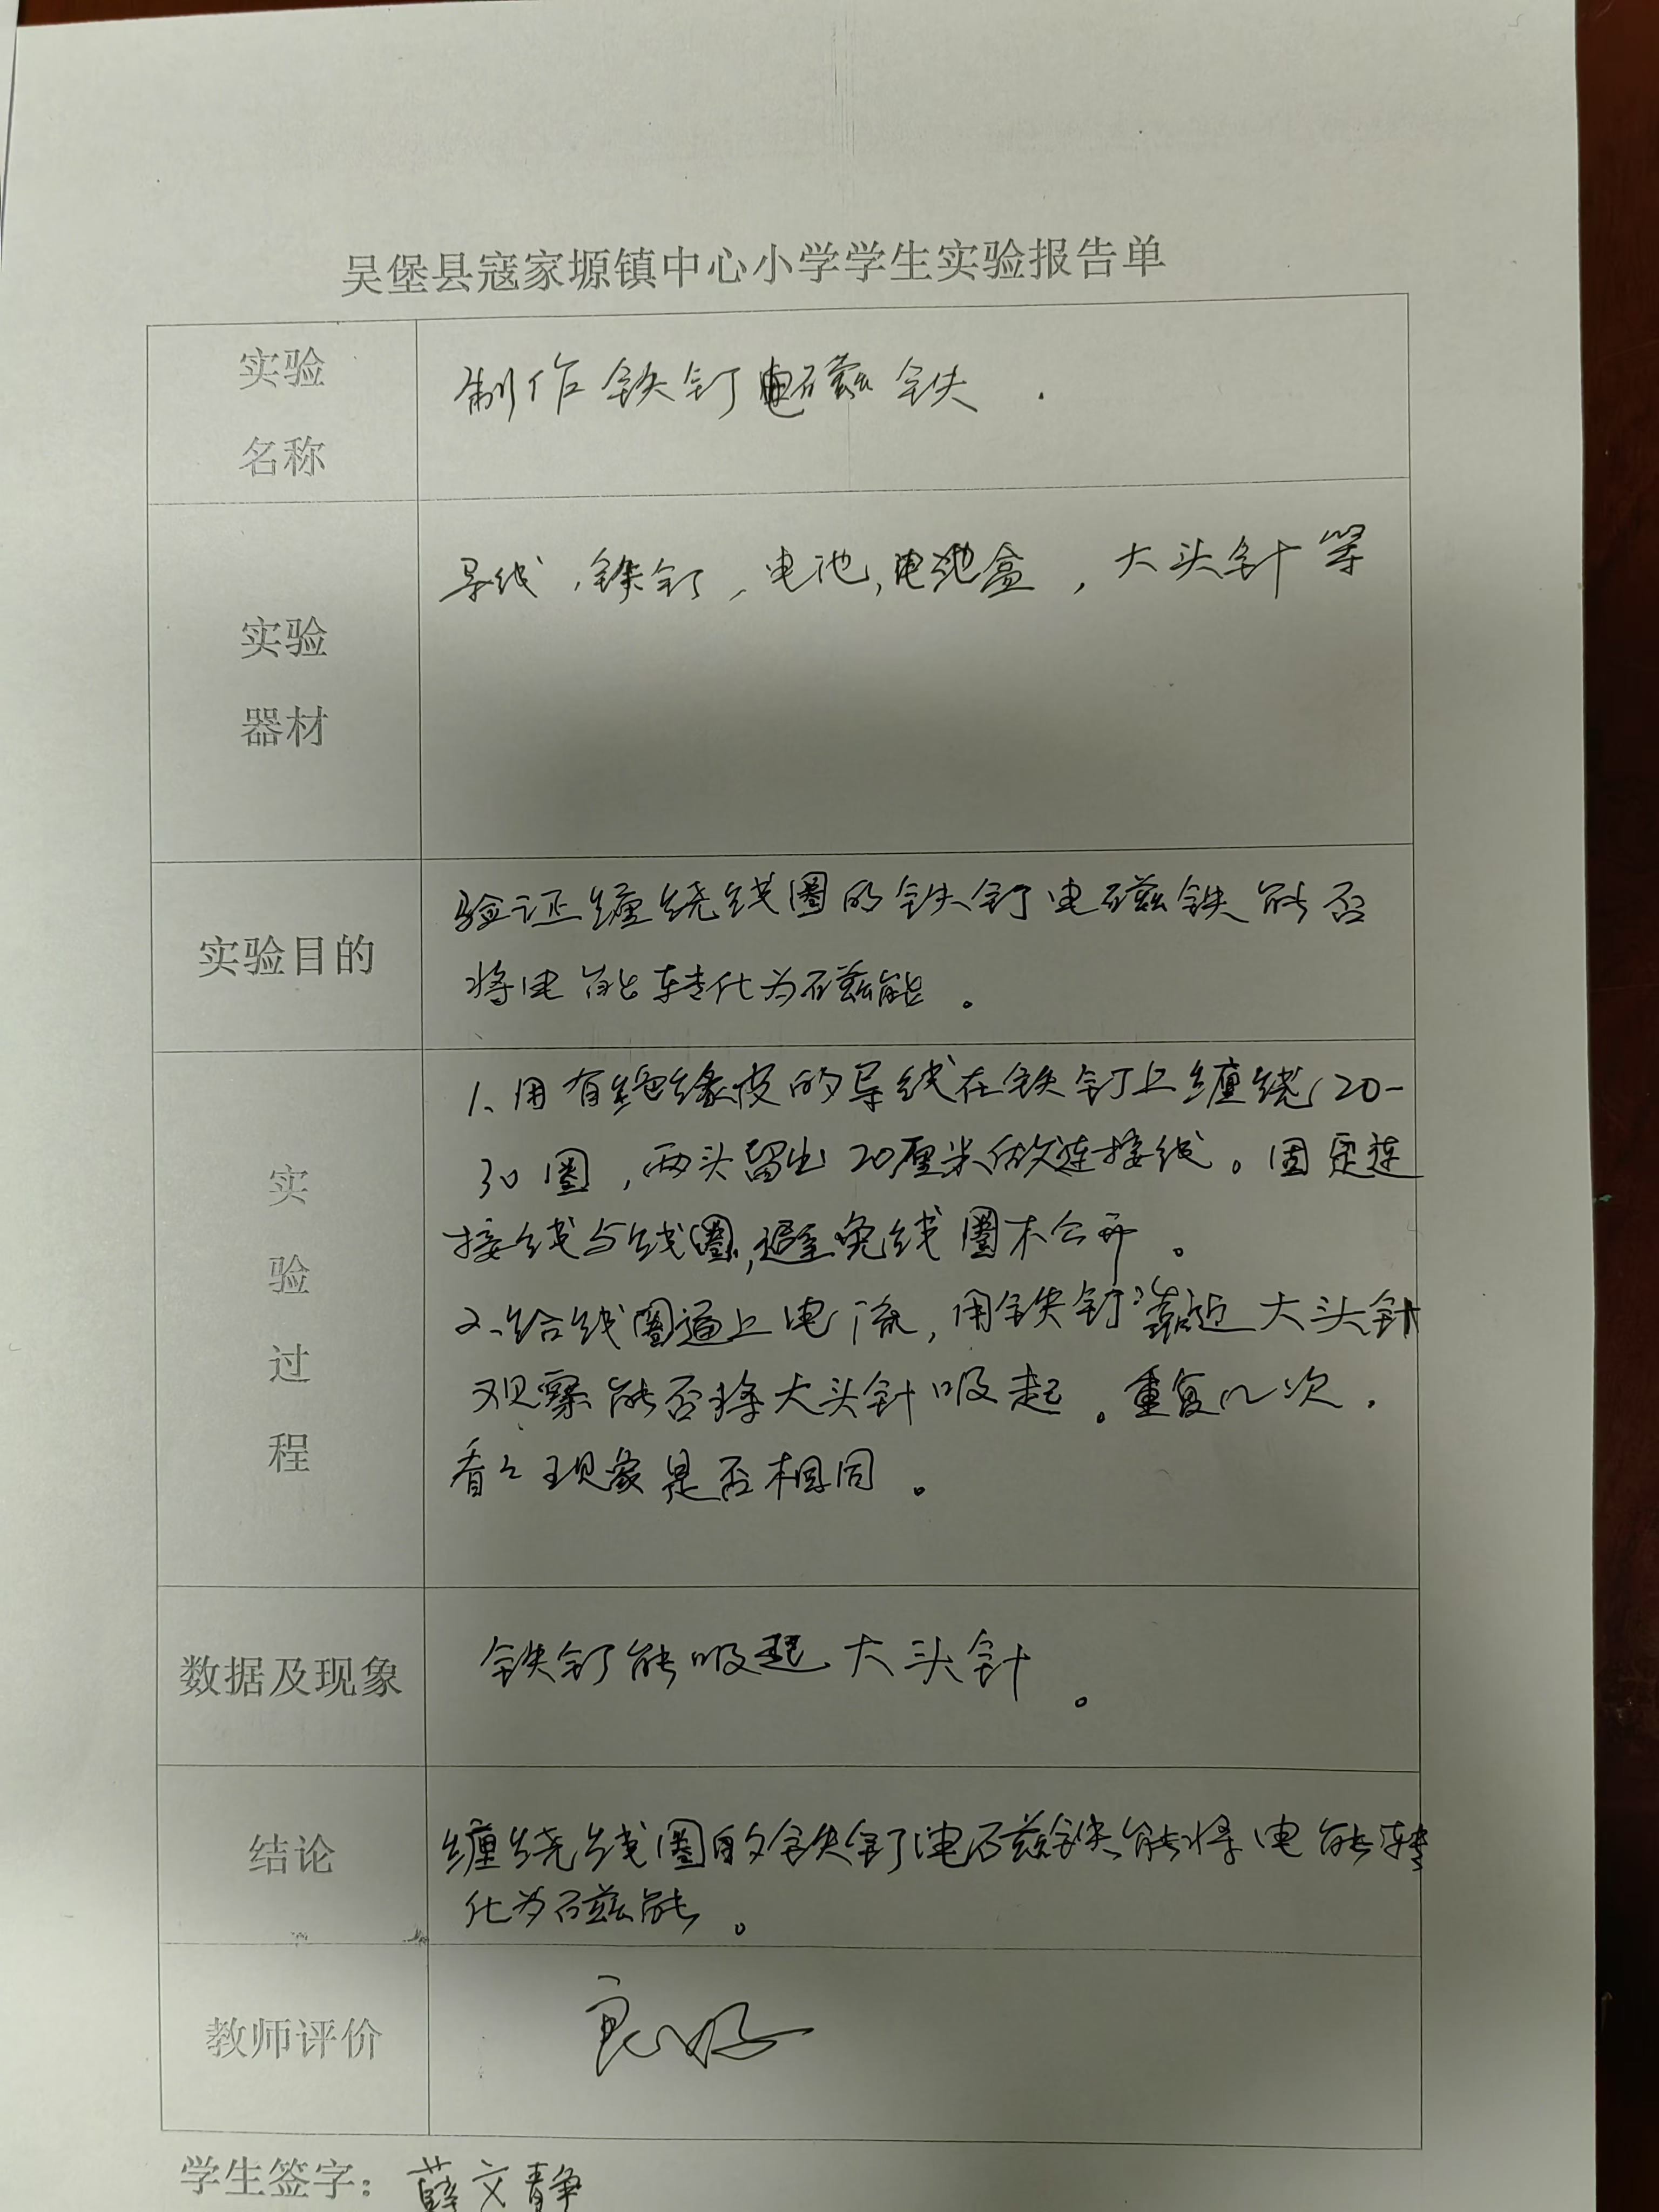 吴堡县寇家塬镇中心小学学生实验报告单
实验
名称
制作铁钉电磁铁.
实验
器材
导线,铁钉,电池,电池盒,大头针等
实验目的
验证缠绕线圈的铁钉电磁铁能否
将电能转化为磁能。
实
验
过
程
1、用有绝缘皮的导线在铁钉上缠绕20-
30圈,两头留出20厘米做连接线。固定连
接线与线圈,避免线圈松开。
2、给线圈通上电流,用铁钉靠近大头针
观察能否将大头针吸起。重复几次.
看看现象是否相同。
数据及现象
铁钉能吸起大头针。
结论
缠绕线圈的铁钉电磁铁能将电能转
化为磁能。
教师评价
良好
学生签字:薛文静